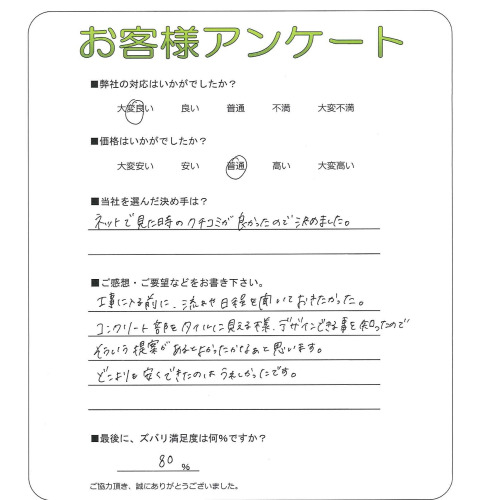 お客様アンケート
■弊社の対応はいかがでしたか？
大変良い 良い 普通 不満 大変不満
■価格はいかがでしたか？
大変安い 安い 普通 高い 大変高い
■当社を選んだ決め手は？
ネットで見た時のクチコミが良かったので決めました。
■ご感想・ご要望などをお書き下さい。
工事に入る前に、流れや日程を聞いておきたかった。
コンクリート部をタイルに見える様、デザインできる事を知ったので
そういう提案があるとよかったかなぁと思います。
どこよりも安くできたのはうれしかったです。
■最後に、ズバリ満足度は何%ですか？
80 %
ご協力頂き、誠にありがとうございました。